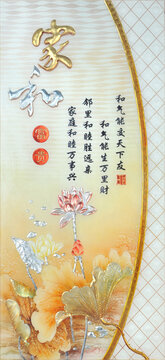 家和
和气能交天下友
和气能生万里财
邻里和睦胜远亲
家庭和睦万事兴